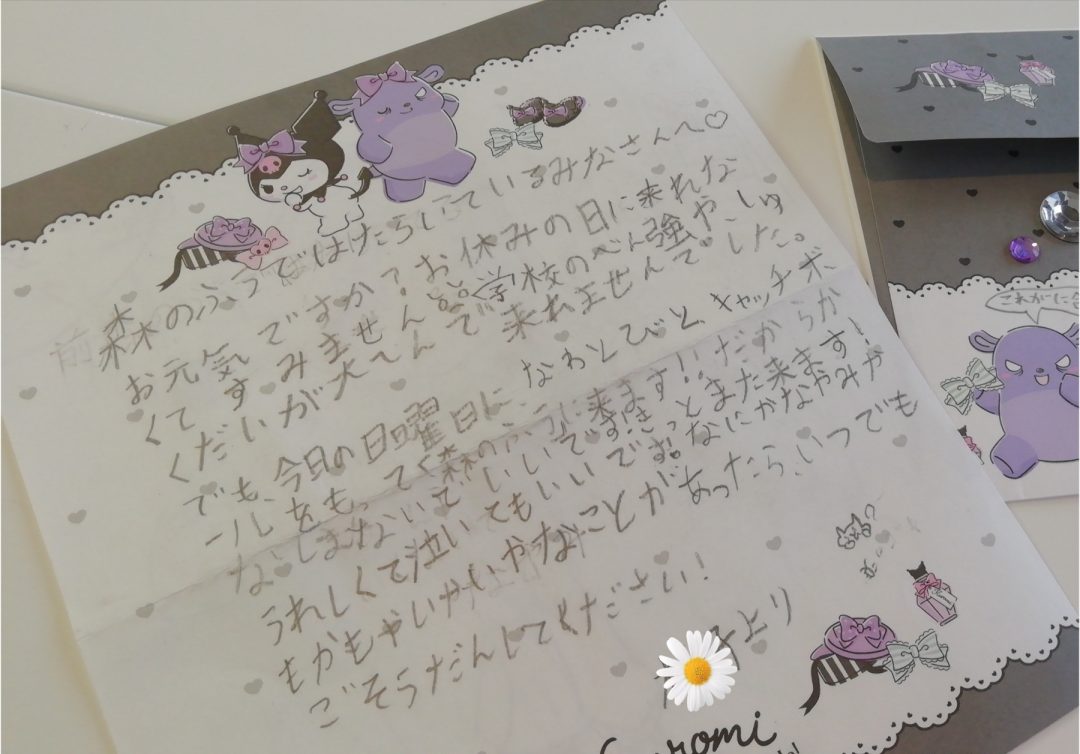 森のふうではたらいているみなさんへ♡
お元気ですか？お休みの日に来れな
くてすみません。学校のべん強やしゅ
くだいが大へんで来れませんでした。
でも、今日の日曜日に なわとびと、キャッチボ
ールをもって森のふうに来ます!!だからか
なしまないでいいです。きっとまた来ます!
うれしくて泣いてもいいです。なにかなやみや
もかもやいやいやなことがあったら、いつでも
ごそうだんしてください!
より
Kuromi
これがに